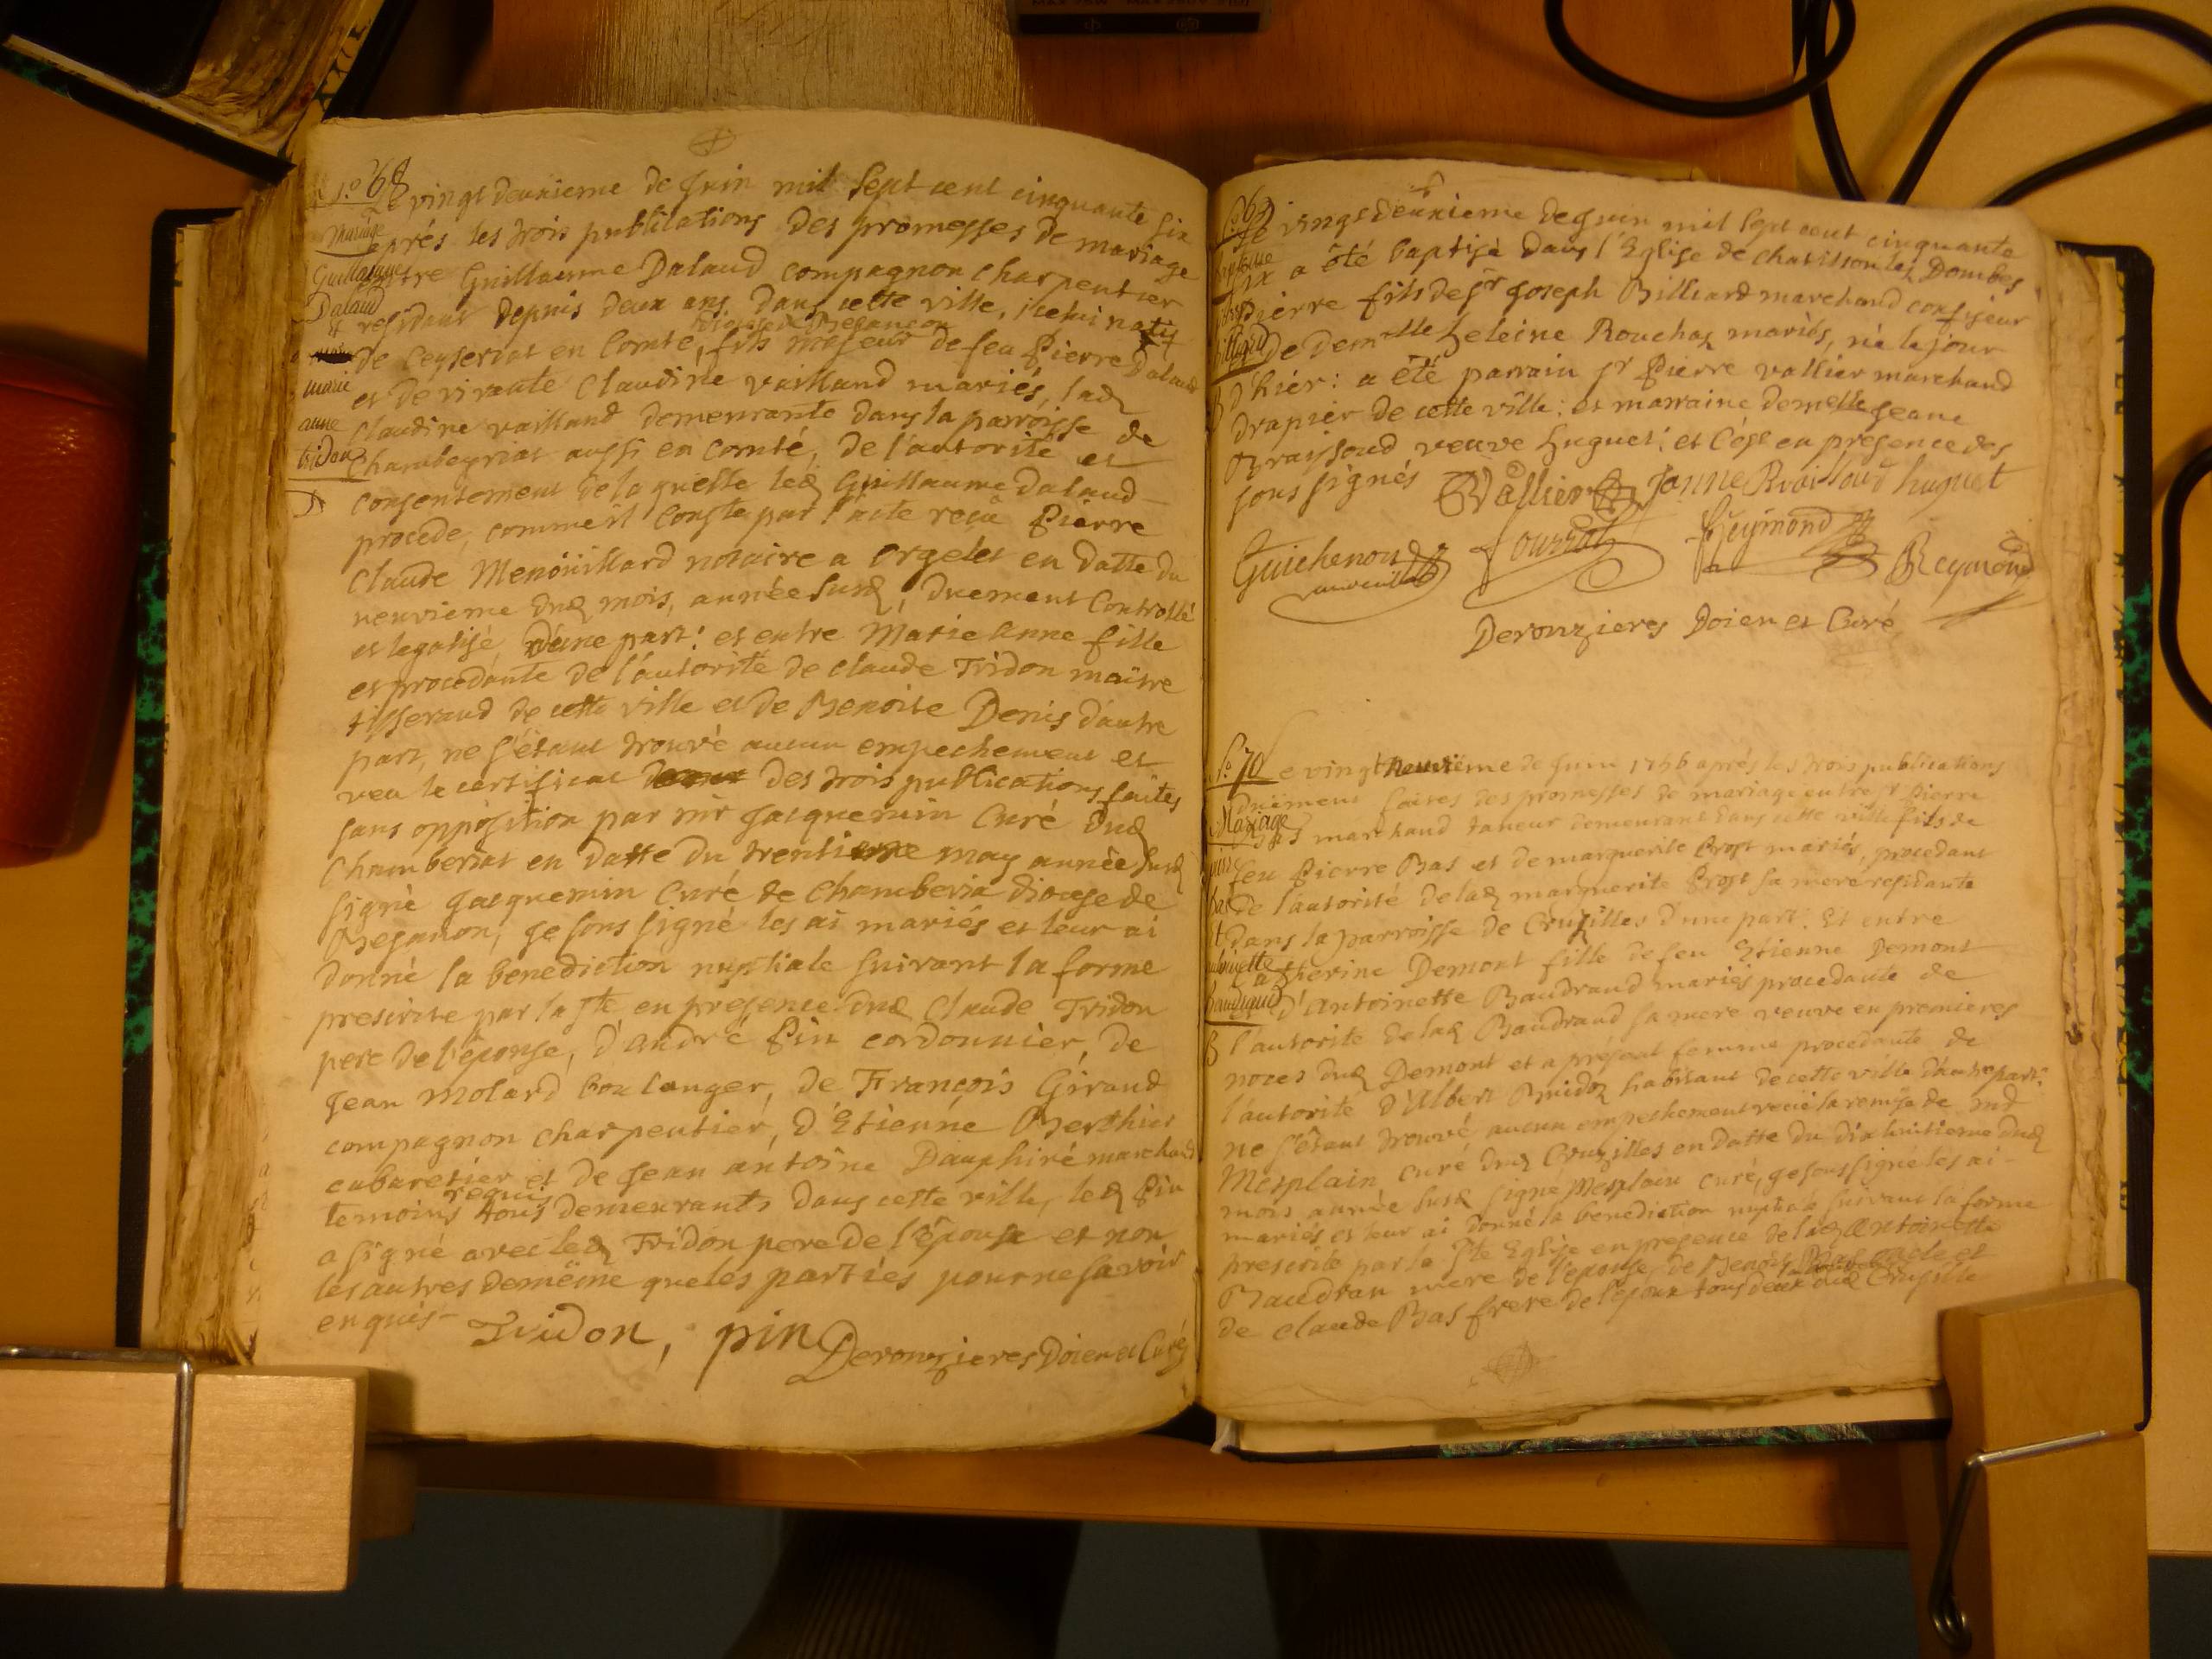 No. 68
Le vingt deuxieme de Juin mil sept cent cinquante six
aprés les trois publications des promesses de mariage
entre Guillaume Dalaud compagnon charpentier
residant depuis deux ans dans cette ville, icelui natif
diocese de Besançon
de Ceyseriat en Comté, fils majeur de feu Pierre Dalaud
et de vivante Claudine vailland mariés, lad
Claudine vailland demeurante dans la parroisse de
Chambeyriat aussi en comté, de l'autorité et
consentement de laquelle led Guillaume Dalaud
procede, comme il conste par l'acte reçu Pierre
Claude Menoüillard notaire a Orgelet en datte du
neuvieme dud mois, année susd, duement Controllé
et legalisé d'une part: et entre Marie Anne fille
et procedante de l'autorité de claude Tridon maitre
tisserand de cette ville et de Benoite Denis d'autre
part, ne s'étant trouvé aucun empechement et
veu le certificat des trois publications faites
sans opposition par mr Jacquemin Curé dud
Chamberiat en datte du trentieme may année susd
signé Jacquemin Curé de Chamberia diocese de
Besançon, je sous signé les ai mariés et leur ai
donné la benediction nuptiale suivant la forme
prescrite par la Ste en presence dud Claude Tridon
pere de l'épouse, d'andré Pin cordonnier, de
Jean Molard boulanger, de François Giraud
compagnon charpentier, d'Etienne Berthier
cabaretier et de Jean antoine Dauphiné marchand
requis
temoins tous demeurants dans cette ville, led Pin
a signé avec led Tridon pere de l'épouse et non
les autres demême que les parties pour ne savoir
enquis
Tridon, pin Derouzieres Doien et Curé
Mariage
Guillaume
Dalaud
et
marie
anne
tridon
No. 69
Le vingt deuxieme de Juin mil sept cent cinquante
six a été baptisé dans l'Eglise de chatillon les Dombes
Pierre fils de Sr Joseph Billiard marchand confiseur
et de demelle heleine Rouchas mariés, né le jour
d'hier: a été parrain Sr Pierre vallier marchand
drapier de cette ville: et marraine demelle Jeane
Braissoud veuve huguet: et c'est en presence des
sous signés Vallier Janne Braissoud huguet
Guichenon Reymond Reymond
Derouzieres Doien et Curé
Bapteme
Pierre
Billiard
No. 70
Le vingt neuvieme de Juin 1756 aprés les trois publications
duëment faites des promesses de mariage entre Sr Pierre
Bas marchand taneur demeurant dans cette ville fils de
feu Pierre Bas et de marguerite Prost mariés, procedant
de l'autorité de lad marguerite Prost sa mere residante
dans la parroisse de Cruzilles d'une part: Et entre
Catherine Demont fille de feu Etienne Demont
et d'Antoinette Baudrand mariés procedante de
l'autorité de lad Baudrand sa mere veuve en premieres
noces dud Demont et a présent femme procedante de
l'autorité d'Albert Buidoz habitant de cette ville d'autre part:
ne s'étant trouvé aucun empechement veue la remise de mr
Mesplain curé dud Cruzilles en datte du dix huitieme dud
mois année susd signé Mesplain curé, je sous signé les ai
mariés et leur ai donné la benediction nuptiale suivant la forme
prescrite par la Ste Eglise en presence de lad Antoinette
Baudran mere de l'épouse, de Benoit Bas oncle et
de claude Bas frere de l'époux tous deux dud Cruzille
Mariage
bas
et
Baudrand